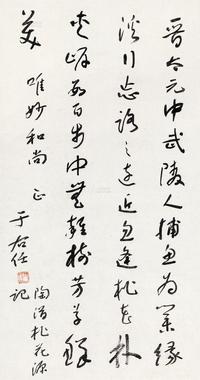 晉太元中武陵人捕魚為業緣
溪行忘路之遠近忽逢桃花林
夾岸數百步中無雜樹芳草鮮
美
唯妙和尚 正
于右任
陶潛桃花源
記